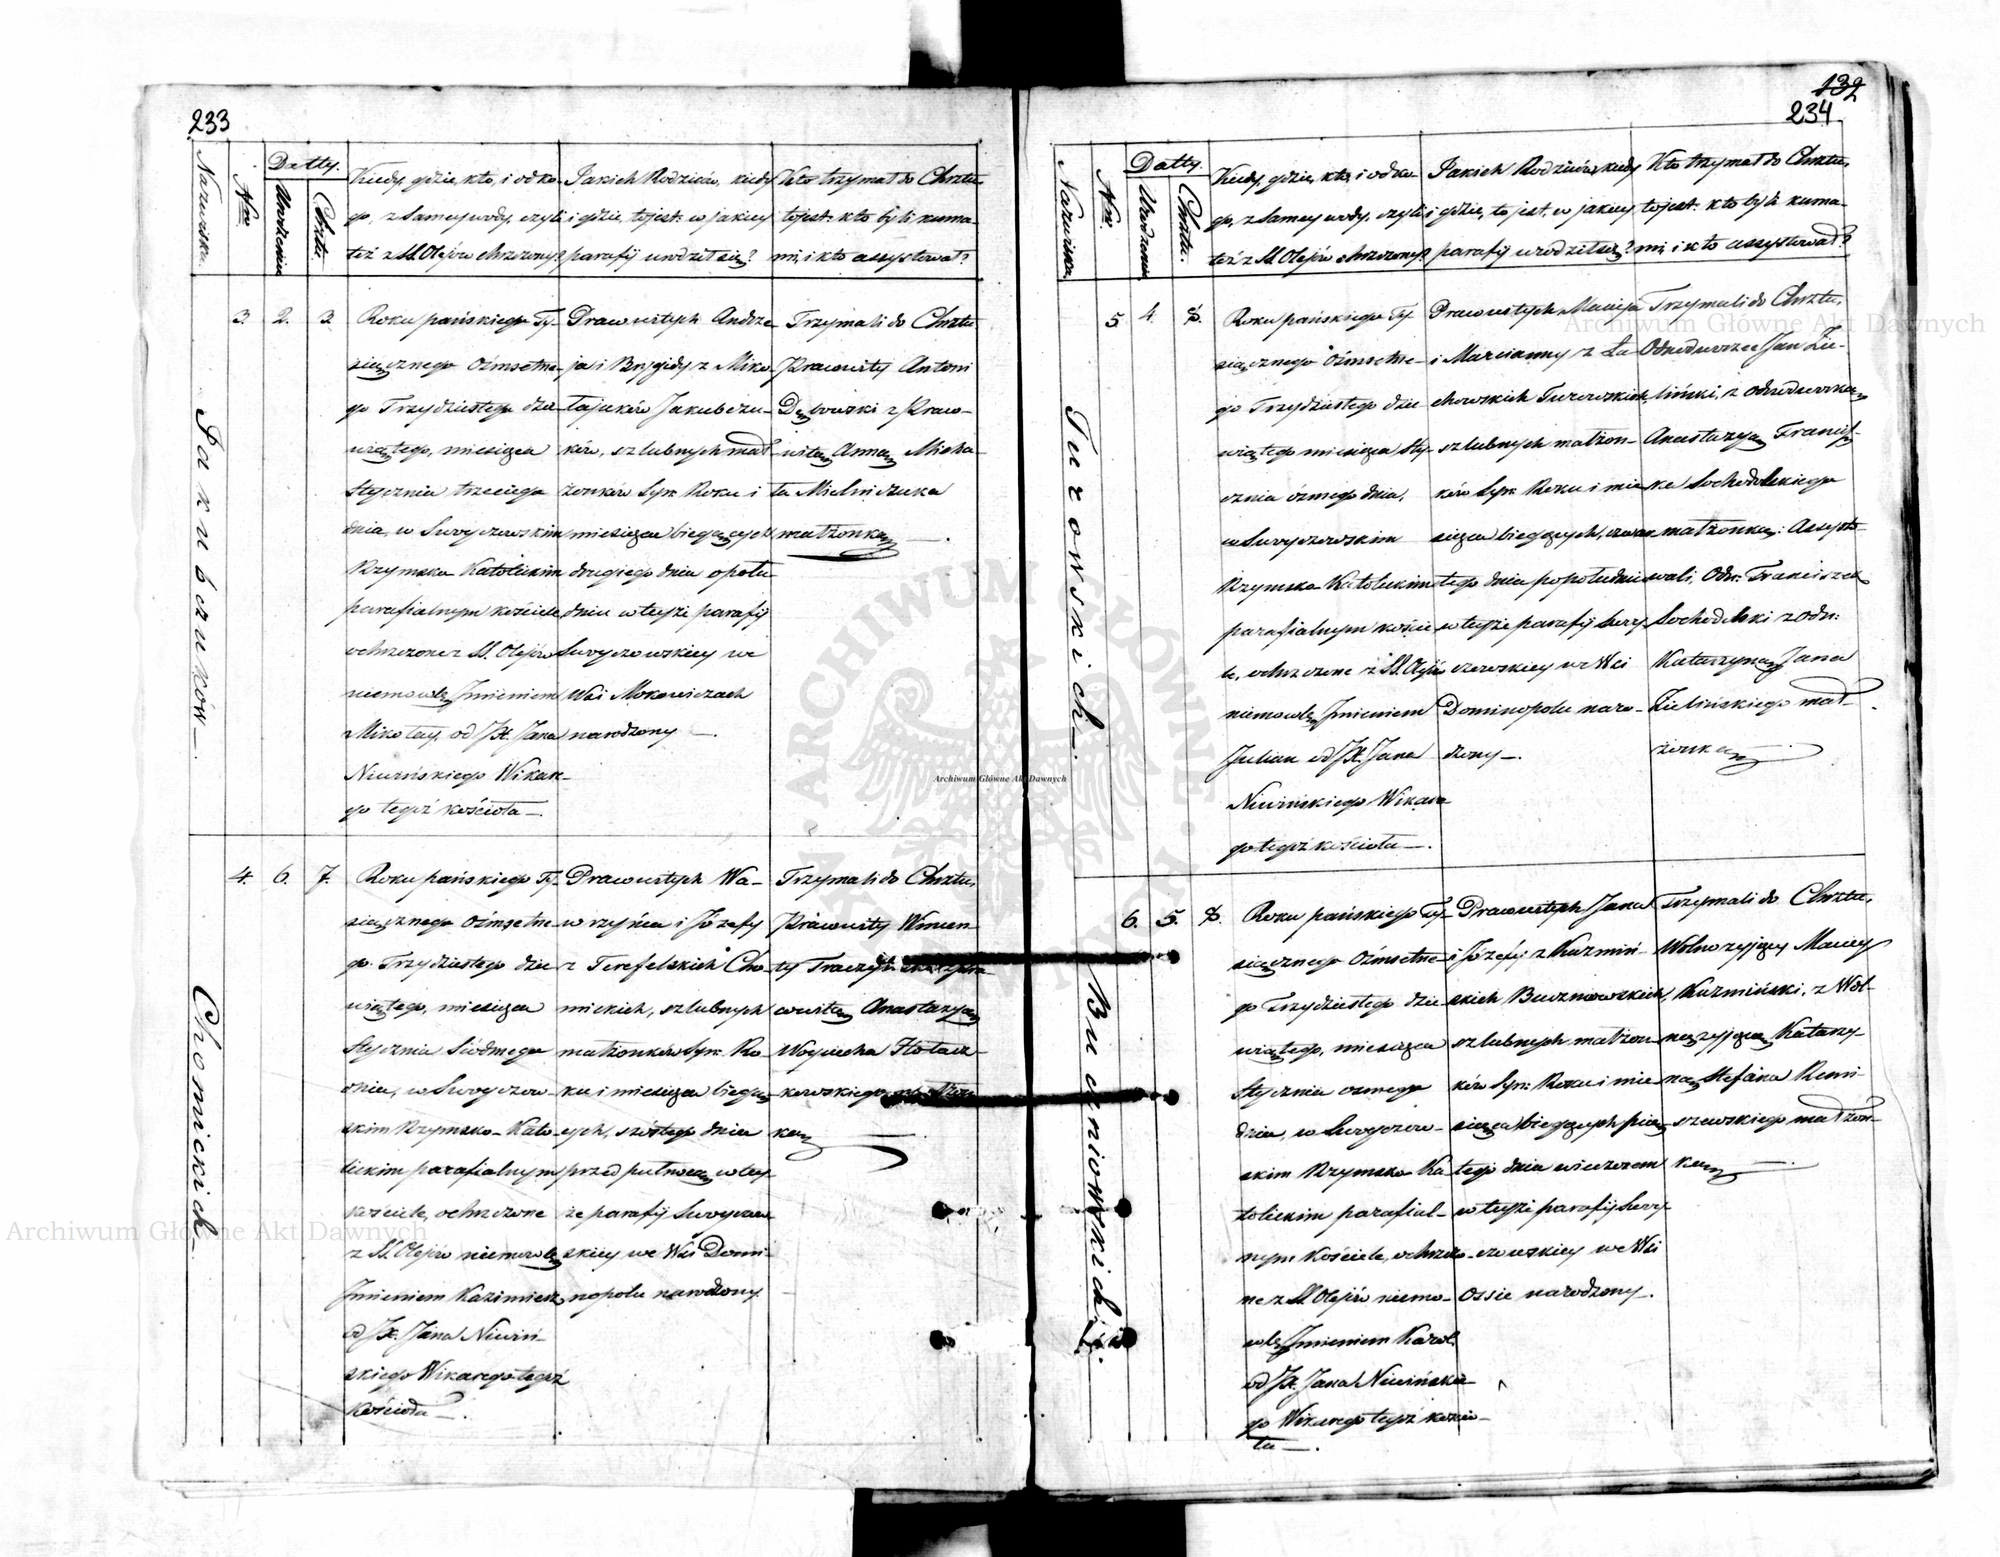 233
Nazwiska.
Nro
Datty.
Urodzenia
Chrztu.
Kiedy, gdzie, kto, i od ko-
go, z Samey wody, czyli
też z SS. Olejów ochrzczony?
Jakich Rodziców, kiedy
i gdzie, to jest: w jakiey
parafij urodził się?
Kto trzymał do Chrztu
to jest: kto byli kuma-
mi, i kto assystował?
Jakubczuków —
3.
2.
3.
Roku pańskiego Ty-
siącznego Ośmsetne-
go Trzydziestego dzie-
wiątego, miesiąca
Stycznia trzeciego
dnia, w Swoyczowskim
Rzymsko Katolickim
parafialnym kościele
ochrzczone z SS. Olejów
niemowlę Jmieniem
Mikołay, od JX. Jana
Niewińskiego Wikar-
go tegoż kościoła —.
Prawowitych Andrze-
ja i Brygidy z Miko-
łajuków Jakubczu-
ków, szlubnych mał-
żonków Syn Roku i
miesiąca bieg̨ących
drugiego dnia o połu-
dniu w teyże parafij
Swoyczowskiey we
Wsi Mokowiczach
narodzony —.
Trzymali do Chrztu
Prawowity Antoni
Dębowski z Prawo-
witą Anną Micha-
ła Mielniczuka
małżonką —.
Chomickich
4.
6.
7.
Roku pańskiego Ty-
siącznego Ośmsetne-
go Trzydziestego dzie-
wiątego, miesiąca
Stycznia Siódmego
dnia, w Swoyczow-
skim Rzymsko-Kato-
lickim parafialnym
kościele, ochrzczone
z SS. Olejów niemowlę
Jmieniem Kazimierz
od JX. Jana Niewiń-
skiego Wikarego tegoż
Kościoła —.
Prawowitych Wa-
wrzyńca i Józefy
z Terefelskich Cho-
mickich, szlubnych
małżonków Syn Ro-
ku i miesiąca biegą-
cych, szóstego dnia
przed północą w tey-
że parafij Swoyczow-
skiey we Wsi Domi-
nopolu narodzony
Trzymali do Chrztu,
Prawowity Wincen-
ty
witą Anastazyą
Woyciecha
kowskiego
ką
132
234
Nazwiska
Nro.
Datty.
Urodzenia
Chrztu.
Kiedy, gdzie, kto, i od ko-
go, z Samey wody, czyli
też z SS. Olejów ochrzczony?
Jakich Rodziców, kiedy
i gdzie, to jest: w jakiey
parafij urodził się?
Kto trzymał do Chrztu,
to jest: kto byli kuma-
mi, i kto assystował?
Turowskich —.
5
4.
8.
Roku pańskiego Ty-
siącznego Ośmsetne-
go Trzydziestego dzie
wiątego miesiąca Sty-
cznia ósmego dnia,
w Swoyczowskim
Rzymsko Katolickim
parafialnym koście
le, ochrzczone z SS. Olejów
niemowlę Jmieniem
Julian od JX. Jana
Niewińskiego Wikare
go tegoż kościoła —.
Prawowitych Macieja
i Maryanny z Za
chowskich Turowskich,
szlubnych małżon-
ków Syn Roku i mie
siąca biegących, czwar
tego dnia popołudniu
w teyże parafij Swoy
czowskiey we Wsi
Dominopolu naro-
dzony —.
Trzymali do Chrztu,
Odnodworzec Jan Zie-
liński, z odnodworką
Anastazyą Francisz-
ka Sochodolskiego
małżonką: Assysto-
wali, Odn. Franciszek
Sochodolski z odn:
Katarzyną Jana
Zielińskiego mał-
żonką —.
Buczniowskich.
6.
5.
8.
Roku pańskiego Ty-
siącznego Ośmsetne-
go Trzydziestego dzie
wiątego, miesiąca
Stycznia osmego
dnia, w Swoyczow-
skim Rzymsko Ka
tolickim parafial-
nym Kościele, ochrzczo-
ne z SS. Olejów niemo-
wlę Jmieniem Karol
od JX. Jana Niewińskie
go Wikarego tegoż kościo-
ła —.
Prawowitych Jana
i Józefy z Kuźmiń-
skich Buczniowskich,
szlubnych małżon
ków Syn Roku i mie
siąca biegących pią-
tego dnia wieczorem
w teyże parafij Swoy-
czowskiey we Wsi
Ossie narodzony.
Trzymali do Chrztu,
Wolno żyjący Maciey
Kuźmiński, z Wol-
ną żyjącą Katarzy-
ną Stefana Remi-
szewskiego małżon-
ką —.
Archiwum Główne Akt Dawnych
Archiwum Główne Akt Dawnych
Archiwum Główne Akt Dawnych